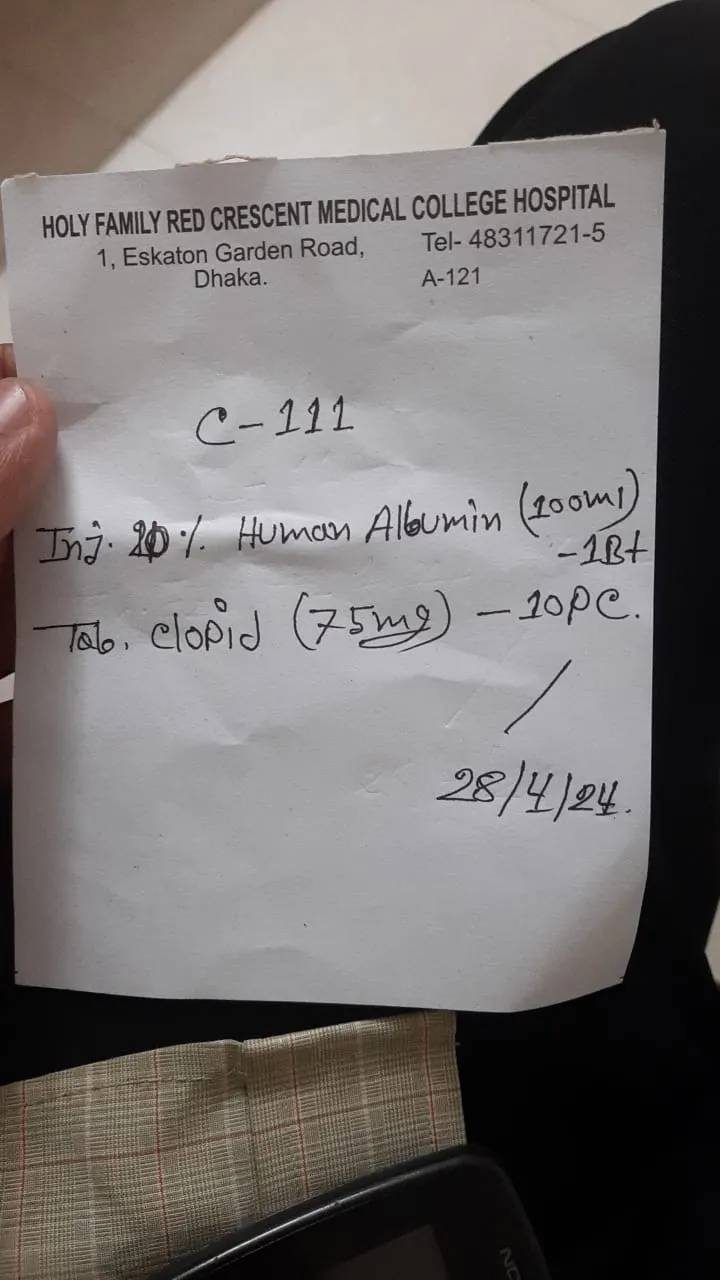 HOLY FAMILY RED CRESCENT MEDICAL COLLEGE HOSPITAL
1, Eskaton Garden Road, Tel- 48311721-5
Dhaka. A-121
C-111
Inj. % Human Albumin (100ml)
-1Bt
Tab. Clopid (75mg) - 10PC.
28/4/24.